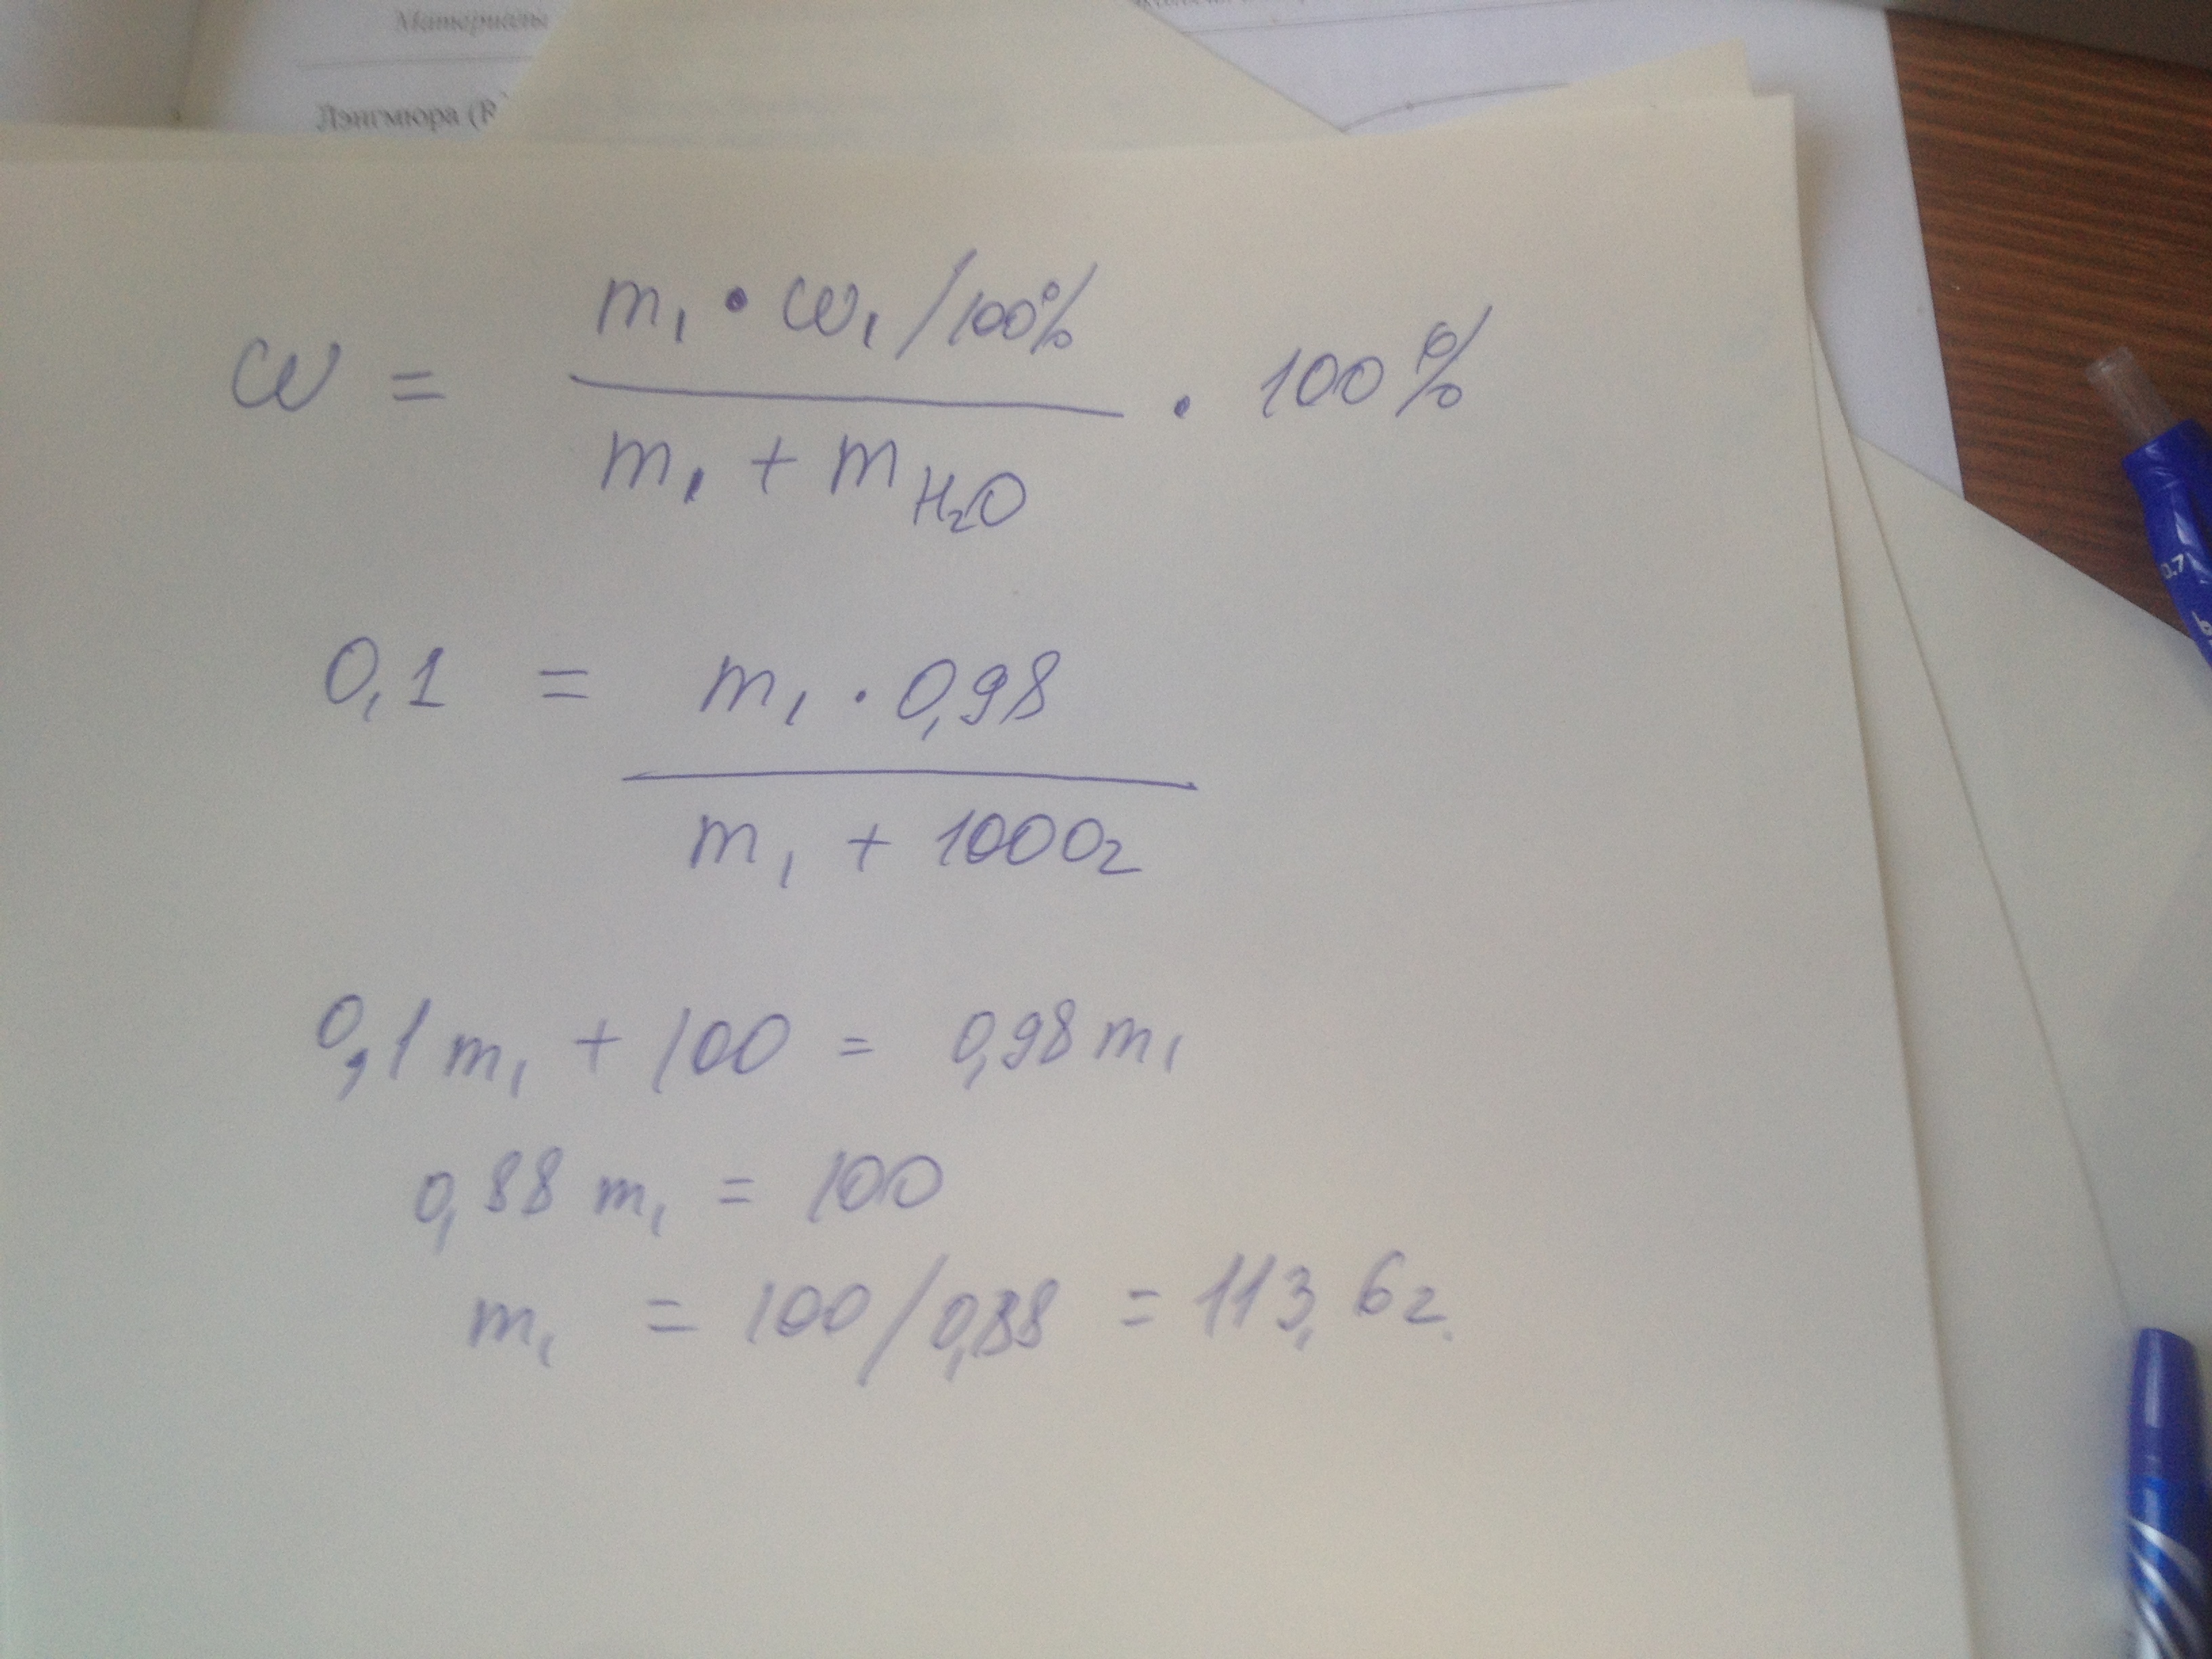 Материалы
Лэнгмюра (R
ω = m₁ · ω₁/100% / m₁ + m H₂O · 100%
0,1 = m₁ · 0,98 / m₁ + 1000г
0,1 m₁ + 100 = 0,98 m₁
0,88 m₁ = 100
m₁ = 100/0,88 = 113,6г.
0.7